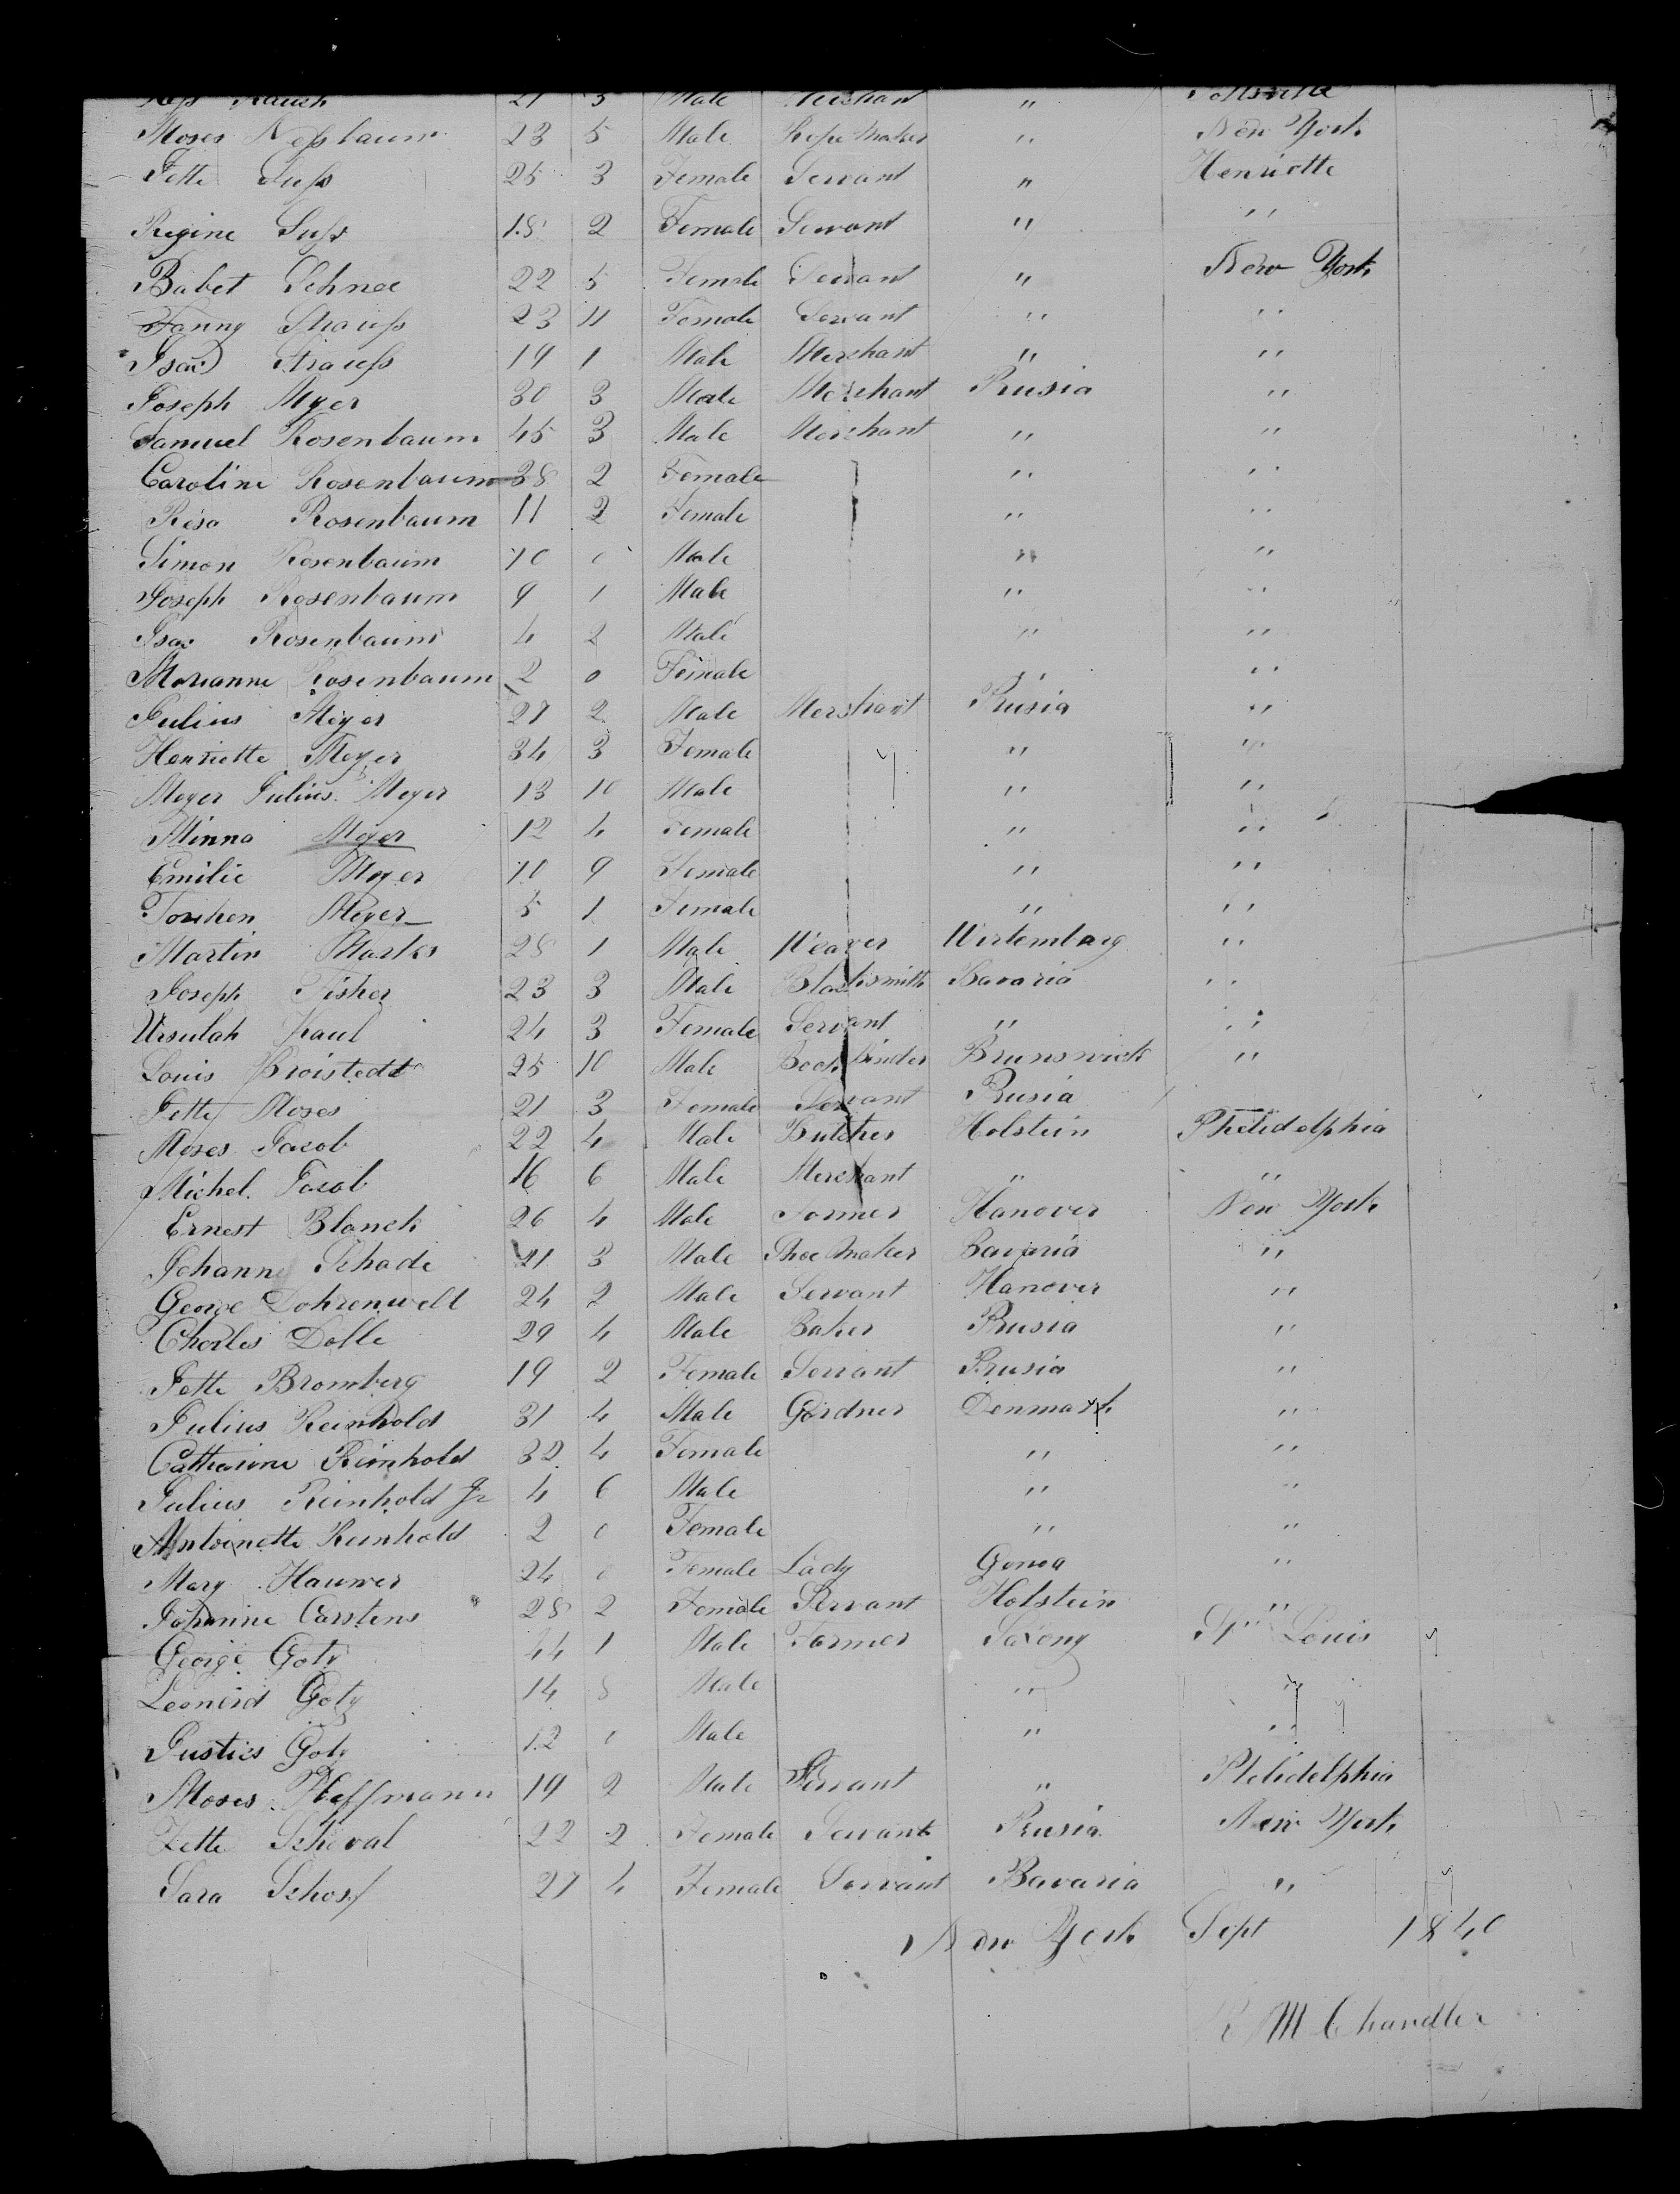 Rauch 21 3 Male Merchant " Pottsville
Moses Neßbaum 23 5 Male Rope Maker " New York
Jette Suß 25 3 Female Servant " Henriette
Regine Suß 18 2 Female Servant " "
Babet Schnee 22 5 Female Servant " New York
Fanny Strauß 23 11 Female Servant " "
Isac Strauß 19 1 Male Merchant " "
Joseph Myer 30 3 Male Merchant Prusia "
Samuel Rosenbaum 45 3 Male Merchant " "
Caroline Rosenbaum 38 2 Female " "
Resa Rosenbaum 11 2 Female " "
Simon Rosenbaum 10 0 Male " "
Joseph Rosenbaum 9 1 Male " "
Isac Rosenbaum 4 2 Male " "
Marianne Rosenbaum 2 0 Female " "
Julius Meyer 27 2 Male Merchant Prusia "
Henriette Meyer 34 3 Female " "
Meyer Julius Meyer 13 10 Male " "
Minna Meyer 12 4 Female " "
Emilie Meyer 10 9 Female " "
Meyer 5 1 Female " "
Martin Marks 28 1 Male Weaver Wirtemberg "
Joseph Fisher 23 3 Male Blacksmith Bavaria "
Ursulah Kaul 24 3 Female Servant " "
Louis Broistedt 25 10 Male Bookbinder Brunswick "
Jette Moses 21 3 Female Servant Prusia
Moses Jacob 22 4 Male Butcher Holstein Philidelphia
Michel Jacob 16 6 Male Merchant " "
Ernest Blanck 26 4 Male Farmer Hanover New York
Johann Schade 21 3 Male Shoe Maker Bavaria "
George Dohrenwell 24 2 Male Servant Hanover "
Charles Dolle 29 4 Male Baker Prusia "
Jette Bromberg 19 2 Female Servant Prusia "
Julius Reinhold 31 4 Male Gardner Denmark "
Catharine Reinhold 32 4 Female " "
Julius Reinhold Jr 4 6 Male " "
Antoinette Reinhold 2 0 Female " "
Mary Hauwer 24 0 Female Lady "
Johanine Carstens 28 2 Female Servant Holstein "
George Goty 44 1 Male Farmer Saxony St Louis
Leonerd Goty 14 8 Male " "
Justies Goty 12 0 Male " "
Moses Hoffmann 19 2 Male Servant " Philidelphia
Jette Scheval 22 2 Female Servant Prusia New York
Sara Schos 27 4 Female Servant Bavaria "
New York Sept 1840
R M Chandler